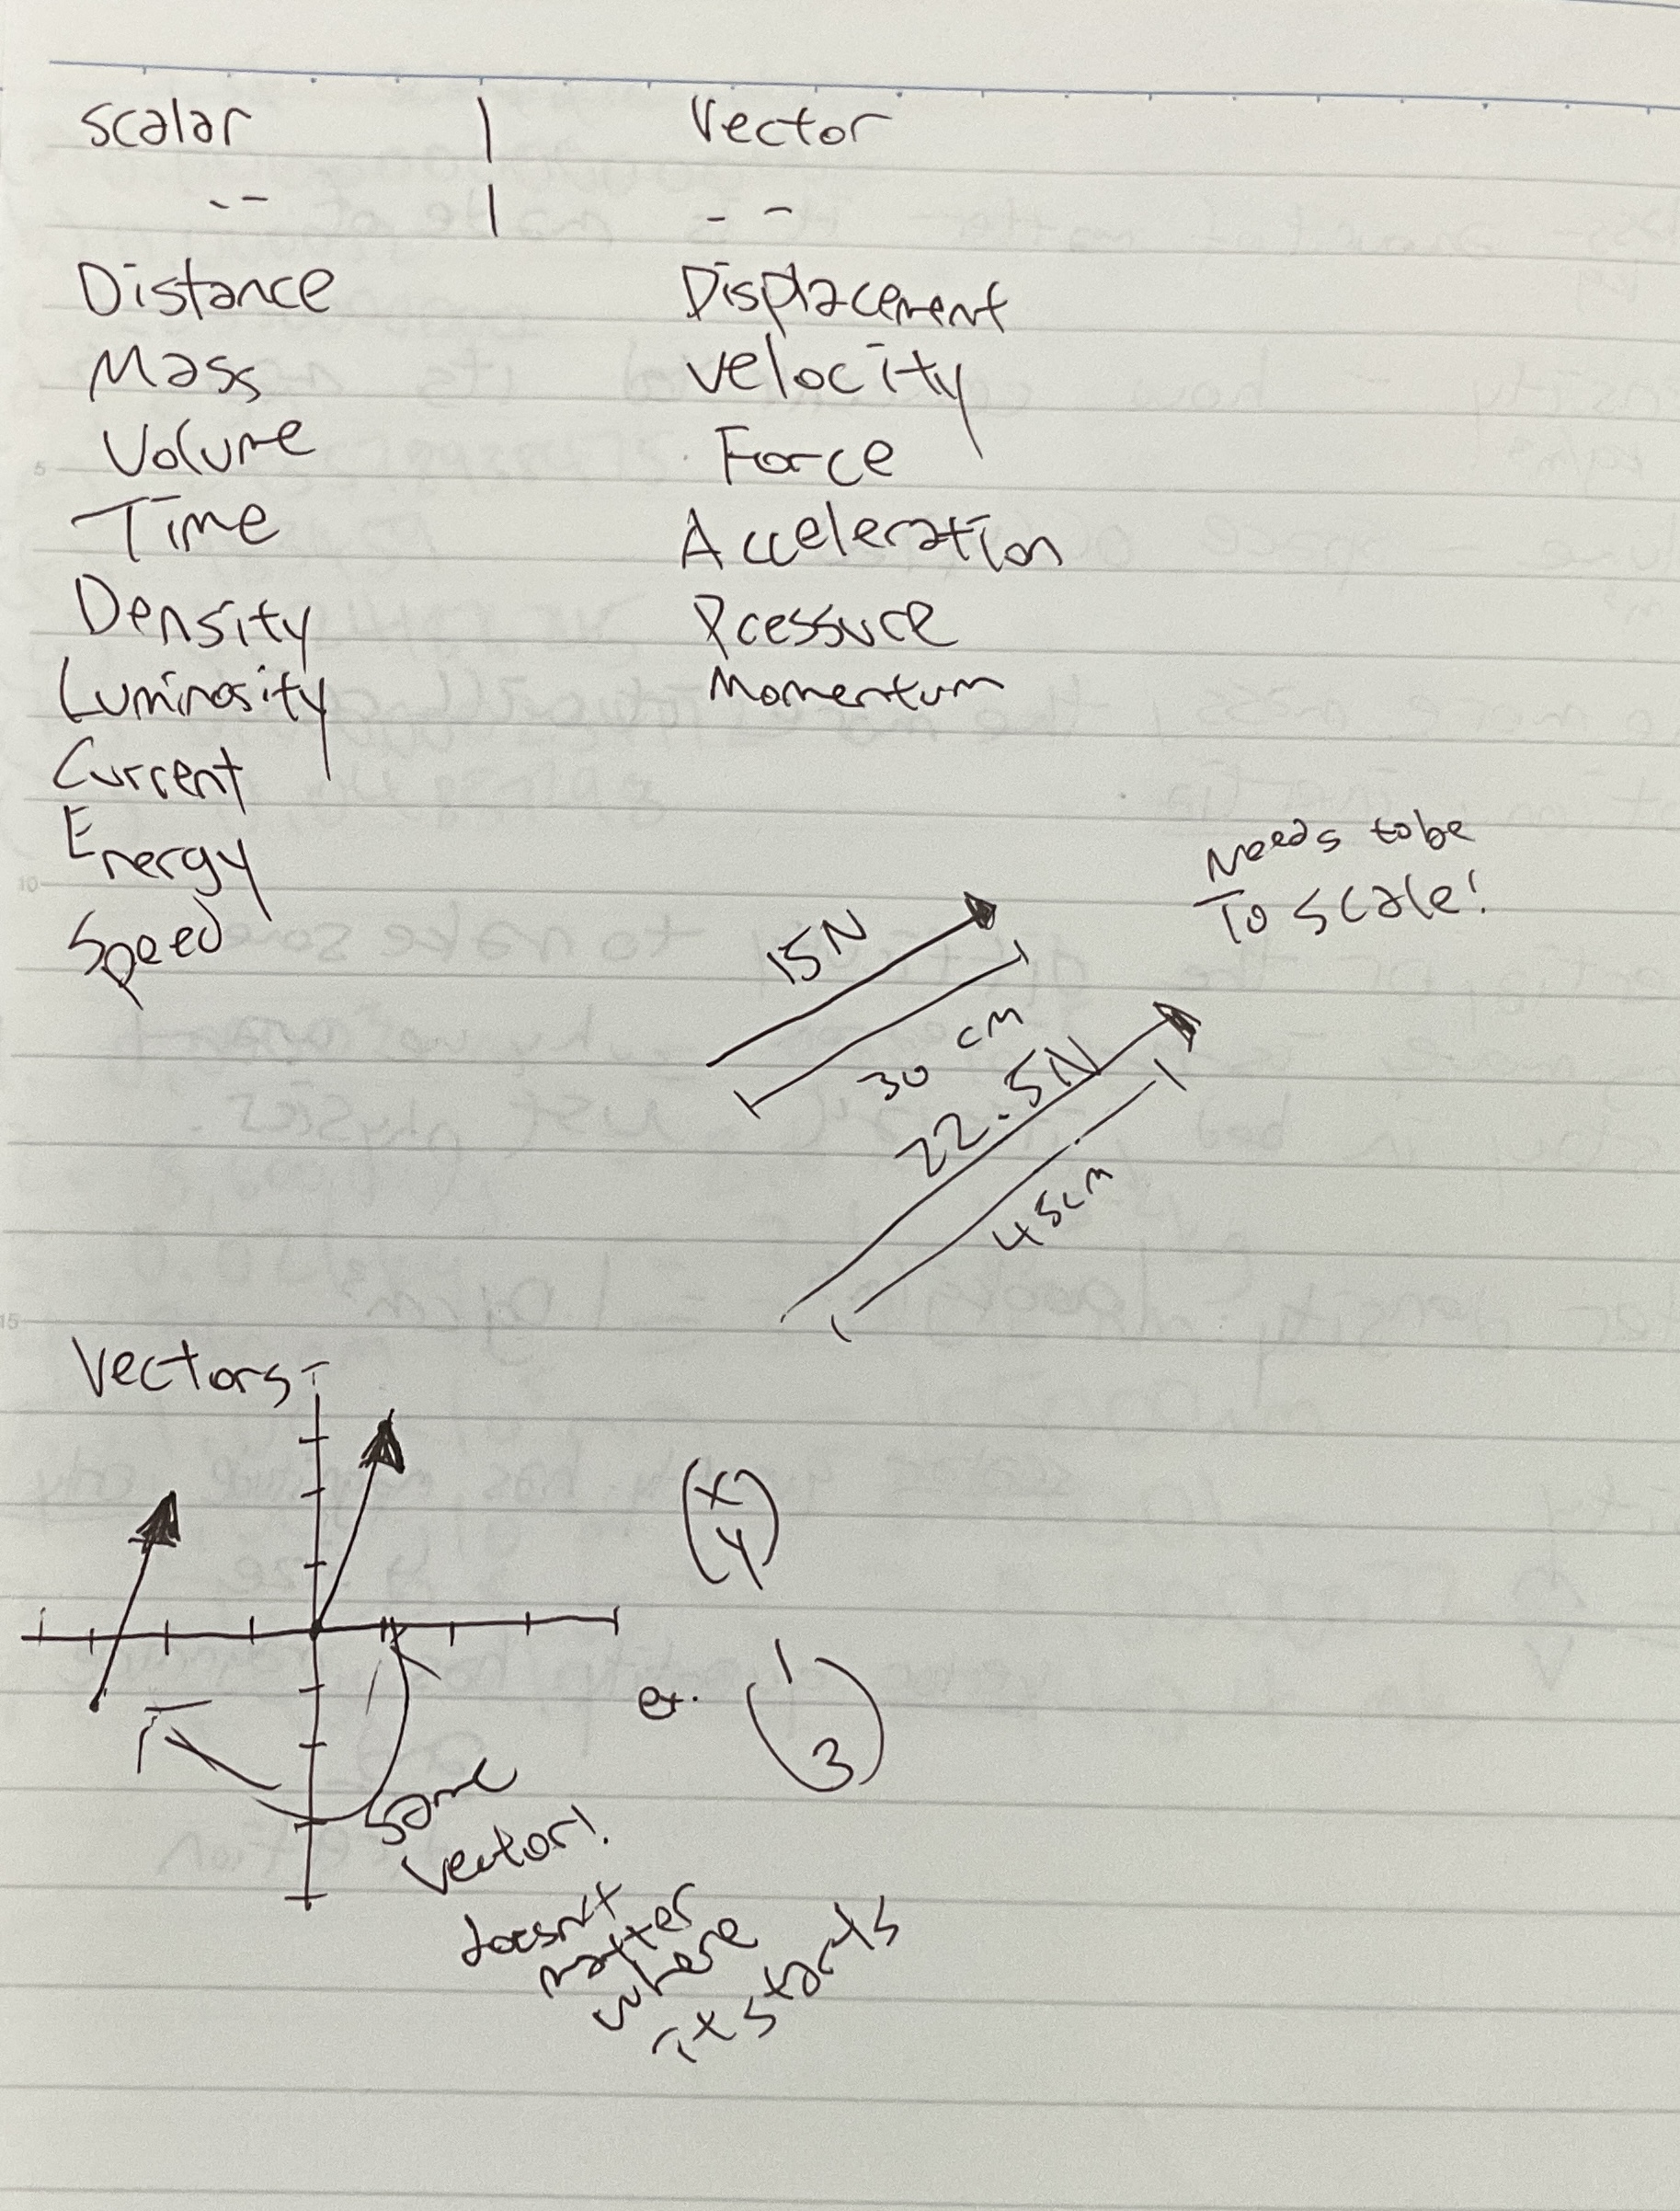 Scalar | Vector
-- | --
Distance Displacement
Mass Velocity
Volume Force
Time Acceleration
Density Pressure
Luminosity Momentum
Current
Energy
Speed
Needs to be
To scale!
15N
30 cm
22.5N
45cm
Vectors
(x
y)
ex. (1
3)
Same
vector!
doesn't
matter
where
it starts
5
10
15